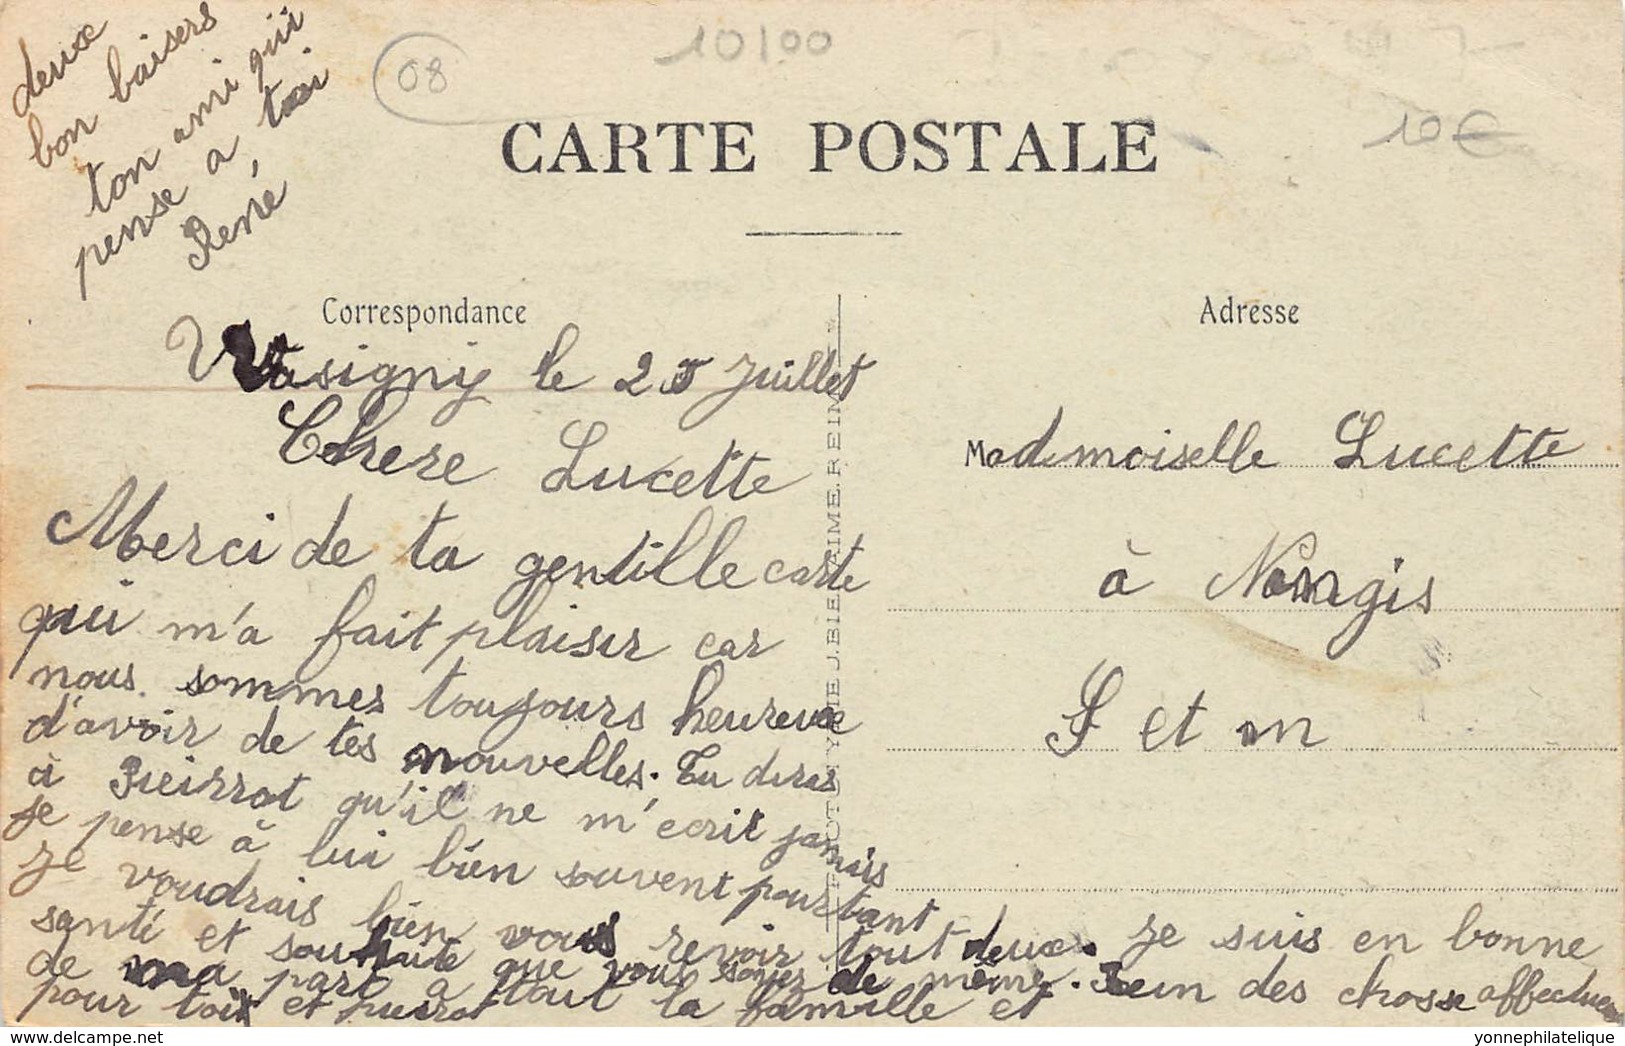 deux
bon baisers
ton ami qui
pense a toi
René
08
10/00
10€
CARTE POSTALE
Correspondance
Adresse
Wasigny le 25 Juillet
Chere Lucette
Merci de ta gentille carte
qui m'a fait plaisir car
nous sommes toujours heureuse
d'avoir de tes nouvelles. Tu diras
à Pieirrot qu'il ne m'ecrit jamais
je pense à lui bien souvent pourtant
je voudrais bien vous revoir tout deux. Je suis en bonne
santé et souhaite que vous soyez de même. Bein des chose affectueu
de ma part a tout la famille et
pour toi et pierrot
PHOTOTYPIE J. BIENAIMÉ. REIMS
Mademoiselle Lucette
à Nangis
S et m
delcampe.net
yonnephilatelique